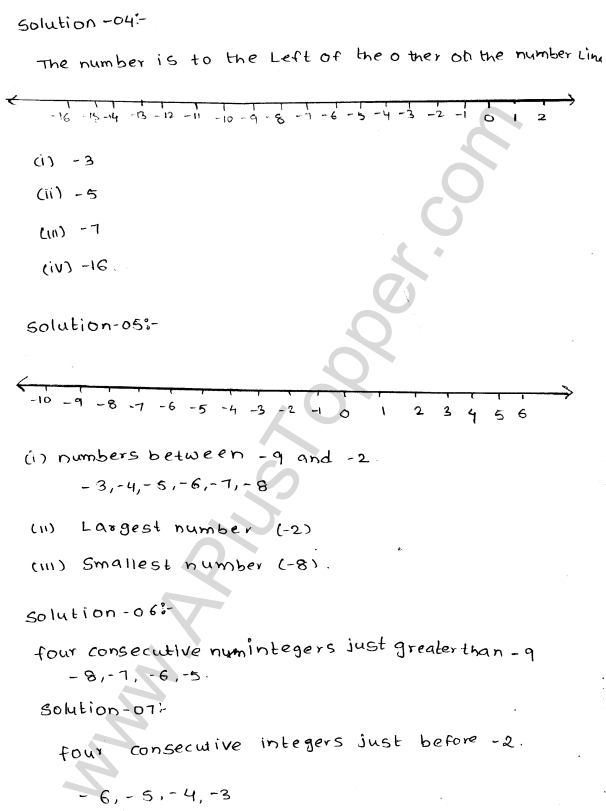 Solution -04:-
The number is to the Left of the other on the number Line
-16 -15 -14 -13 -12 -11 -10 -9 -8 -7 -6 -5 -4 -3 -2 -1 0 1 2
(i) -3
(ii) -5
(iii) -7
(iv) -16.
Solution-05:-
-10 -9 -8 -7 -6 -5 -4 -3 -2 -1 0 1 2 3 4 5 6
(i) numbers between -9 and -2.
-3,-4,-5,-6,-7,-8
(ii) Largest number (-2)
(iii) Smallest number (-8).
Solution-06:-
four consecutive numintegers just greater than -9
-8,-7,-6,-5.
Solution-07:-
four consecutive integers just before -2.
-6,-5,-4,-3
www.APlusTopper.com